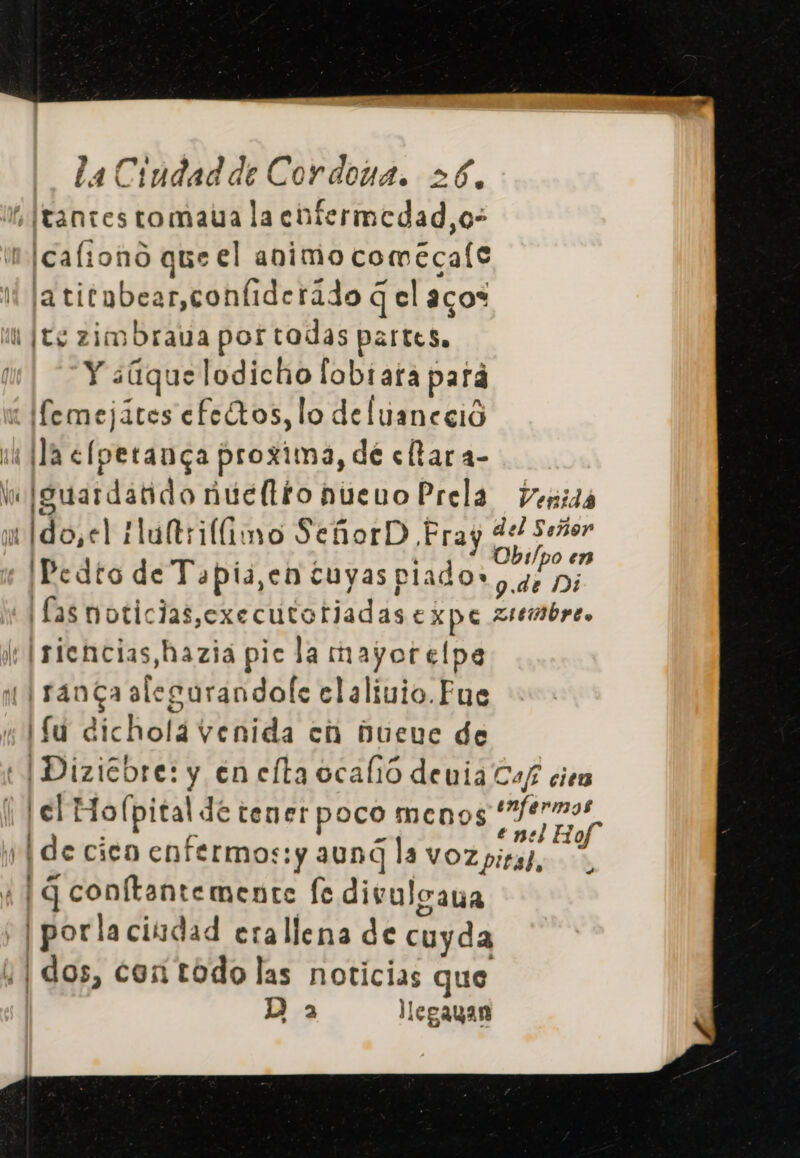 la Ciudad de Cordoua. 26.
tantes tomaua la enfermedad, o-
casionò que el animo comẽcase
a titubear, considerãdo q̃ el aço-
te zimbraua por todas partes.
Y aũque lo dicho sobrara para
semejãtes efectos, lo desuaneciò
la esperança proxima, de estar a-
guardando nuestro nueuo Prela
do, el Ilustrissimo Señor D. Fray
Pedro de Tapia, en cuyas piado-
sas noticias, executoriadas expe
riencias, hazia pie la mayor espe
rança assegurandose el aliuio. Fue
su dichosa venida en nueue de
Diziẽbre: y en esta ocasiõ deuia
el Hospital de tener poco menos
de cien enfermos: y aunq̃ la voz
q̃ constantemente se diuulgaua
por la ciudad era llena de cuyda
dos, con todo las noticias que
D 2 llegauan
Venida
del Señor
Obispo en
9. de Di
ziembre.
Casi cien
enfermos
en el Hos
pital.